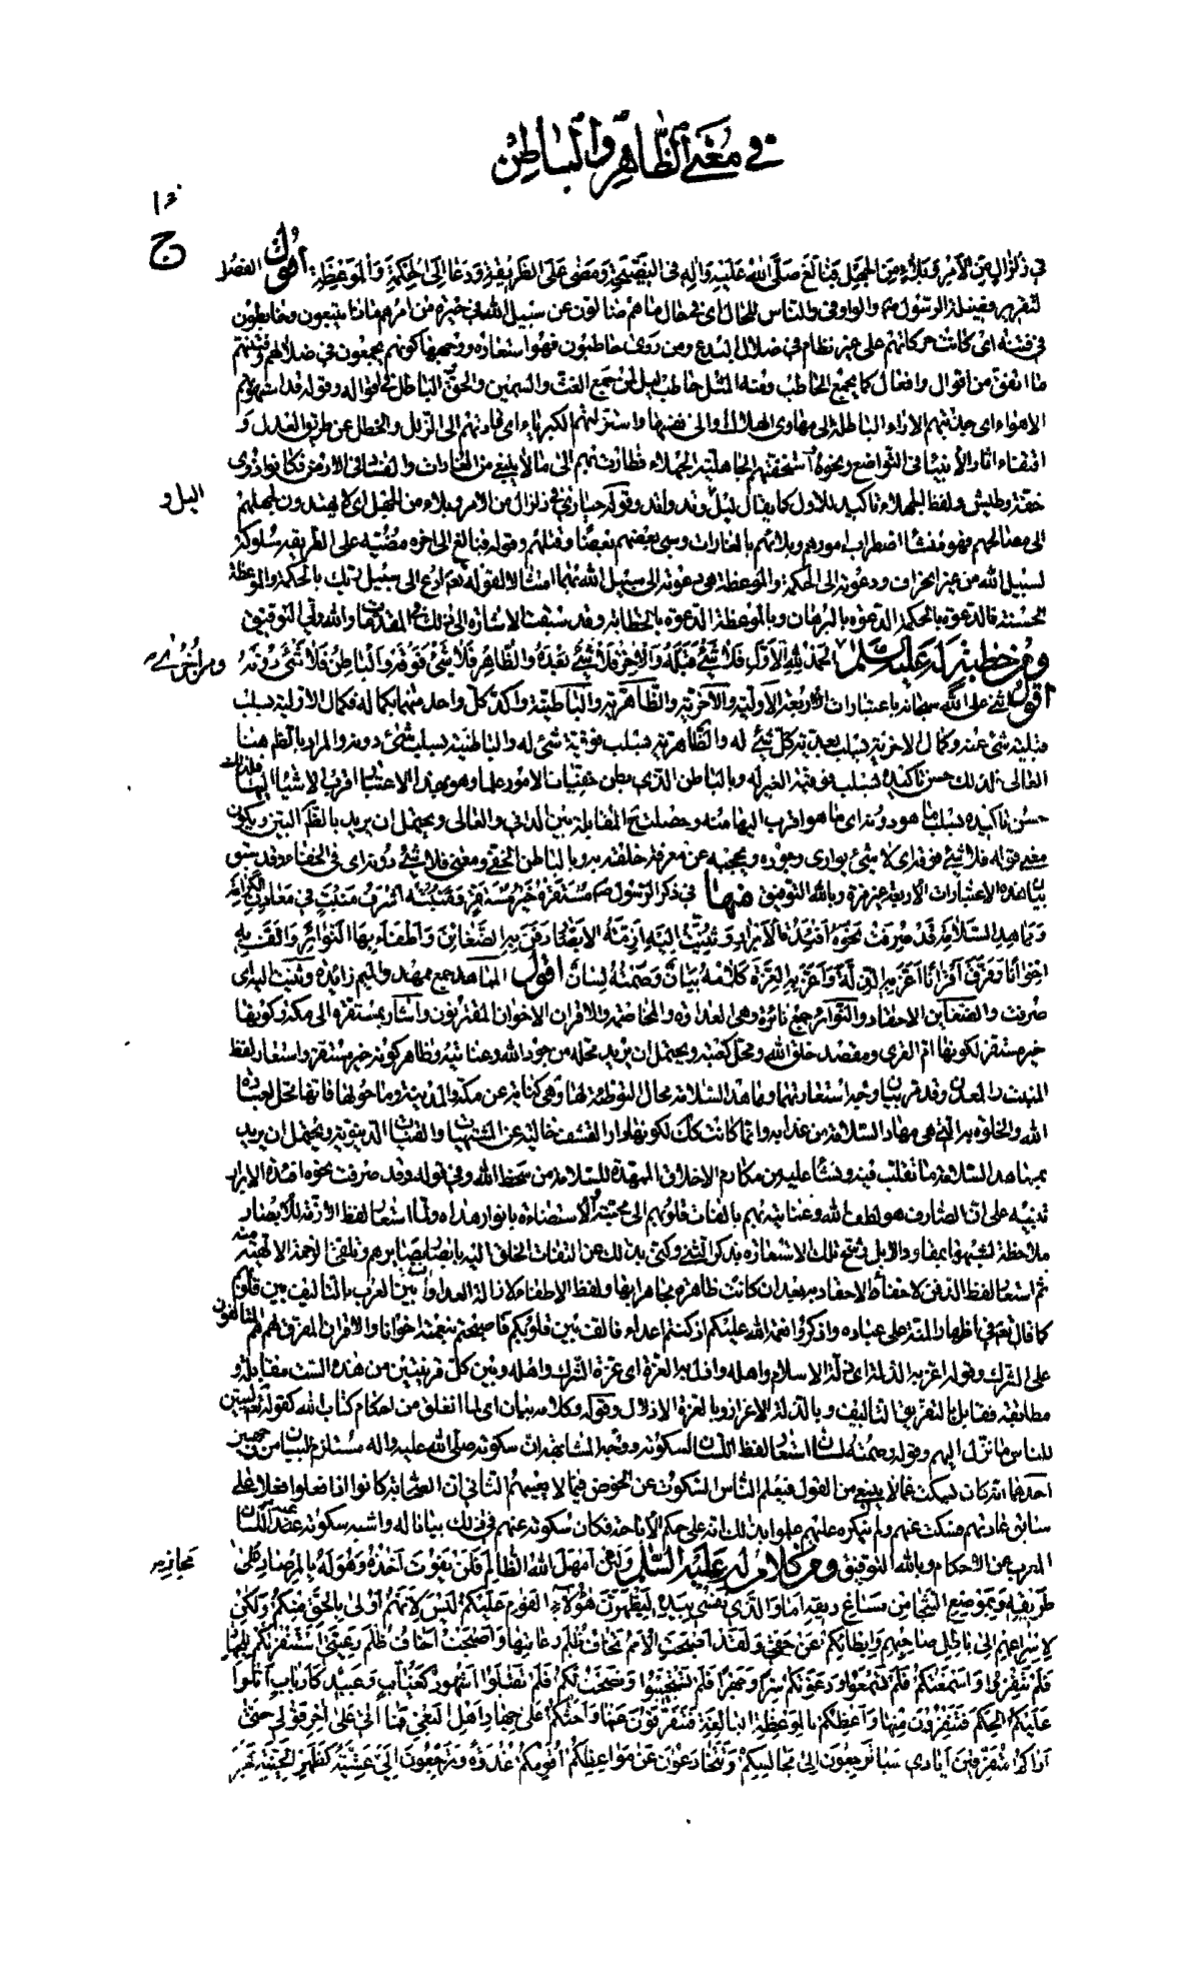 في معنى الظاهر والباطن
ج
في زلزال من الأمر وبلاء من الجهل فبالغ صلى الله عليه واله في النصيحة ومضى على الطريقة ودعا الى الحكمة والموعظة اقول الفصل
لتقرير فضيلة الرسول والواو في والناس للحال اى في حال ما هم ضالون عن سبيل الله في حيرة من امرهم وخابطون
في فتنة اى كانت حركاتهم على غير نظام في ضلال البدع ومن روى حاطبون فهو استعارة ووجهها كونهم يجمعون في ضلالهم وفتنتهم
ما اتفق من اقوال وافعال كما يجمع الحاطب ومنه المثل حاطب ليل لمن جمع الغث والسمين والحق والباطل في اقواله وقوله قد استهوتهم
الاهواء اى جذبتهم الاراء الباطلة الى مهاوى الهلاك واستزلتهم الكبرياء اى قادتهم الى الزلل والخطل عن طريق العدل و
اقتفاء اثار الأنبياء في التواضع ونحوه استخفتهم الجاهلية الجهلاء فطارت بهم الى ما لا ينبغي من الغارات والفساد في الارض فكانوا ذوى
خفة وطيش ولفظ الجهلاء تاكيد للاول كما يقال ليل وتد واتد وقوله حيارى في زلزال من الامر وبلاء من الجهل اى لا يهتدون لجهلهم
اليل و
الى مصالحهم فهو منشأ اضطراب امورهم وبلائهم بالغارات وسبى بعضهم بعضا وقتلهم وقوله فبالغ الى اخره مضيه على الطريقة سلوكه
لسبيل الله من غير انحراف ودعوته الى الحكمة والموعظة هي دعوته الى سبيل الله بهما امتثالا لقوله تعم ادع الى سبيل ربك بالحكمة والموعظة
الحسنة فالدعوة بالحكمة الدعوة بالبرهان وبالموعظة الدعوة بالخطابة وقد سبقت الاشارة الى ذلك في المقدمات والله ولي التوفيق
ومن خطبة له عليه السلام الحمد لله الاول فلا شئ قبله والاخر فلا شئ بعده والظاهر فلا شئ فوقه والباطن فلا شئ دونه
ومن اخرى
اقول اثنى على الله سبحانه باعتبارات الاربعة الاولية والآخرية والظاهرية والباطنية واكد كل واحد منها بكماله فكمال الاولية بسلب
قبلية شئ عنه وكمال الاخرية بسلب بعدية كل شئ له والظاهرية بسلب فوقية شئ له والباطنية بسلب شئ دونه والمراد بالظاهر هنا
العالى لذلك حسن تاكيده بسلب فوقية الغير له وبالباطن الذى بطن خفيات الامور علما وهو بهذا الاعتبار اقرب الاشياء اليها فلذلك
حسن تاكيده بسلب ما هو دونه اى ما هو اقرب اليها منه وحصلت المقابلة بين الداني والعالى ويحتمل ان يريد بالظاهر البين ويكون
معنى قوله فلا شئ فوقه اى لا شئ يوارى وجوده ويحجبه عن معرفة خلقه به وبالباطن الخفي ومعنى فلا شئ دونه اى في الخفاء وقد سبق
بيان هذه الاعتبارات الاربعة غير مرة وبالله التوفيق منها في ذكر الرسول ص مستقره خير مستقر ومنبته اشرف منبت في معادن الكرامة
ومماهد السلامة قد صرفت نحوه افئدة الأبرار وثنيت اليه ازمة الابصار دفن به الضغائن واطفأ به النوائر والف به
اخوانا وفرق اقرانا اعز به الذلة واذل به العزة كلامه بيان وصمته لسان اقول المماهد جمع ممهد والميم زائدة وثنيت اليه اى
صرفت والضغاين الاحقاد والنوائر جمع نائرة وهي العداوة والمخاصمة والاقران الاخوان المقترنون واشار بمستقره الى مكة وكونها
خير مستقر لكونها ام القرى ومقصد خلق الله ومحل كعبته ويحتمل ان يريد محله من جود الله وعنايته وظاهر كونه خير مستقر واستعار لفظ
المنبت والمعدن وقد مر بيان وجه استعارتهما ومماهد السلامة محال التوطئة لها وهي كناية عن مكة والمدينة وما حولها فانها محل لعبادة
الله والخلوة به التي هي مهاد السلامة من عذابه وانما كانت كك لكونها دار القشف خالية عن المشتهيات والقينات الدنيوية ويحتمل ان يريد
بمماهد السلامة ما تقلب فيه ونشأ عليه من مكارم الاخلاق الممهدة للسلامة من سخط الله وفي قوله وقد صرفت نحوه افئدة الابرار
تنبيه على ان الصارف هو لطف الله وعنايته بهم بالفات قلوبهم الى محبته والاستضاءة بانوار هداه ولما استعار لفظ الازمة للأبصار
ملاحظة لشبهها بمقاود الابل رشح تلك الاستعارة بذكر الثنى وكنى بذلك عن التفات الخلق اليه بابصار بصايرهم وتلقى الرحمة الالهية منه
ثم استعار لفظ الدفن لاخفاء الاحقاد به بعد ان كانت ظاهرة مجاهرا بها ولفظ الاطفاء لازالة العداوات بين العرب بالتاليف بين قلوبهم
كما قال تعم في اظهار المنة على عباده واذكروا نعمة الله عليكم اذ كنتم اعداء فالف بين قلوبكم فاصبحتم بنعمته اخوانا والاقران المفرق لهم هم المتالفون
على الشرك وقوله اعز به الذلة اى ذلة الاسلام واهله واذل به العزة اى عزة الشرك واهله وبين كل قرينتين من هذه الست مقابلة و
مطابقة فقابل بالتفريق التاليف وبالذلة الاعزاز وبالعزة الاذلال وقوله وكلامه بيان اى لما انغلق من احكام كتاب الله كقوله تعم لتبين
للناس ما نزل اليهم وقوله وصمته لسان استعار لفظ اللسان لسكوته ووجه المشابهة ان سكوته صلى الله عليه واله مستلزم للبيان من وجهين
احدهما انه كان يسكت عما لا ينبغي من القول فيعلم الناس السكوت عن الخوض فيما لا يعنيهم الثاني ان الصحابة كانوا اذا فعلوا فعلا على
سابق عادتهم فسكت عنهم ولم ينكره عليهم علموا بذلك انه على حكم الاباحة فكان سكوته عنهم في ذلك بيانا له واشبه سكوته عنه اللسان
المعرب عن الاحكام وبالله التوفيق ومن كلام له عليه السلام ولئن امهل الله الظالم فلن يفوت اخذه وهو له بالمرصاد على
مجاز
طريقه وبموضع الشجا من مساغ ريقه اما والذي نفسي بيده ليظهرن هؤلاء القوم عليكم ليس لانهم أولى بالحق منكم ولكن
لاسراعهم الى باطل صاحبهم وابطائكم عن حقي ولقد اصبحت الامم تخاف ظلم رعاتها واصبحت اخاف ظلم رعيتي استنفرتكم للجهاد
فلم تنفروا واسمعتكم فلم تسمعوا ودعوتكم سرا وجهرا فلم تستجيبوا ونصحت لكم فلم تقبلوا اشهود كغياب وعبيد كارباب اتلوا
عليكم الحكم فتنفرون منها واعظكم بالموعظة البالغة فتتفرقون عنها واحثكم على جهاد اهل البغي فما اتى على اخر قولي حتى
اراكم متفرقين ايادي سبا ترجعون الى مجالسكم وتتخادعون عن مواعظكم اقومكم غدوة وترجعون الي عشية كظهر الحية عجز